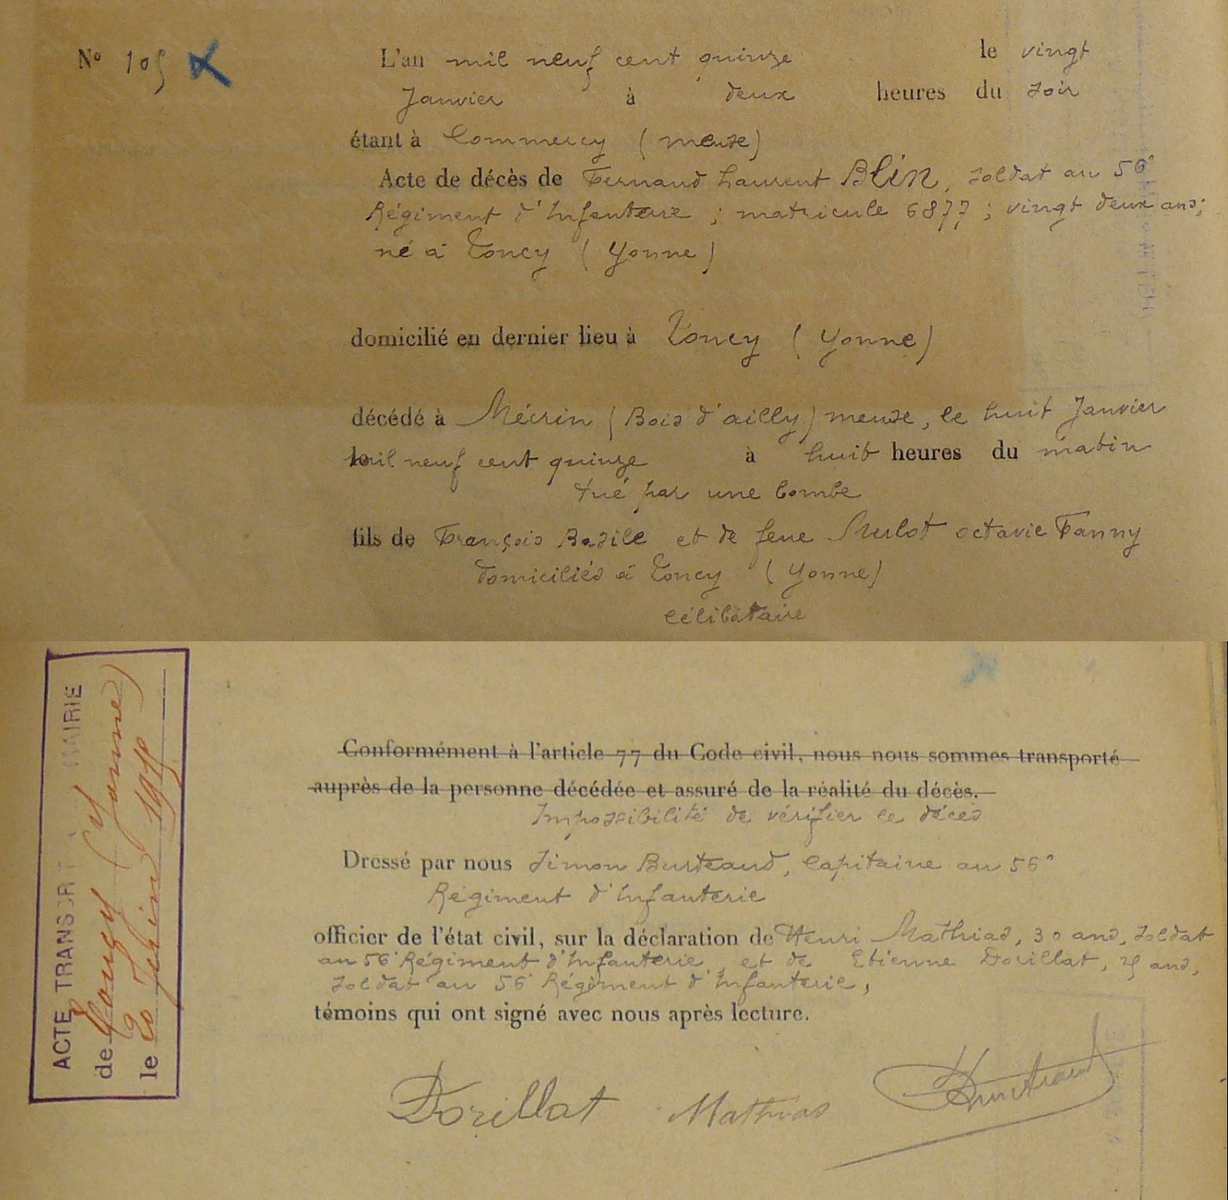 N° 105
L'an mil neuf cent quinze le vingt
Janvier à deux heures du soir
étant à Commercy (Meuse)
Acte de décès de Fernand Laurent Blin, soldat au 56e
Régiment d'Infanterie ; matricule 6877 ; vingt deux ans ;
né à Toucy (Yonne)
domicilié en dernier lieu à Toucy (Yonne)
décédé à Mécrin (Bois d'ailly) meuse, le huit Janvier
mil neuf cent quinze à huit heures du matin
tué par une bombe
fils de François Basile et de feue Mulot octavie Fanny
domiciliés à Toucy (Yonne)
célibataire
Conformément à l'article 77 du Code civil, nous nous sommes transporté
auprès de la personne décédée et assuré de la réalité du décès.
Impossibilité de vérifier le décès
Dressé par nous Simon Burteaud, Capitaine au 56e
Régiment d'Infanterie
officier de l'état civil, sur la déclaration de Henri Mathias, 30 ans, soldat
au 56e Régiment d'Infanterie et de Etienne Dorillat, 25 ans,
soldat au 56e Régiment d'Infanterie,
témoins qui ont signé avec nous après lecture.
Dorillat Mathias Burteaud
ACTE TRANSCRIT MAIRIE
de Toucy (Yonne)
le 20 1915